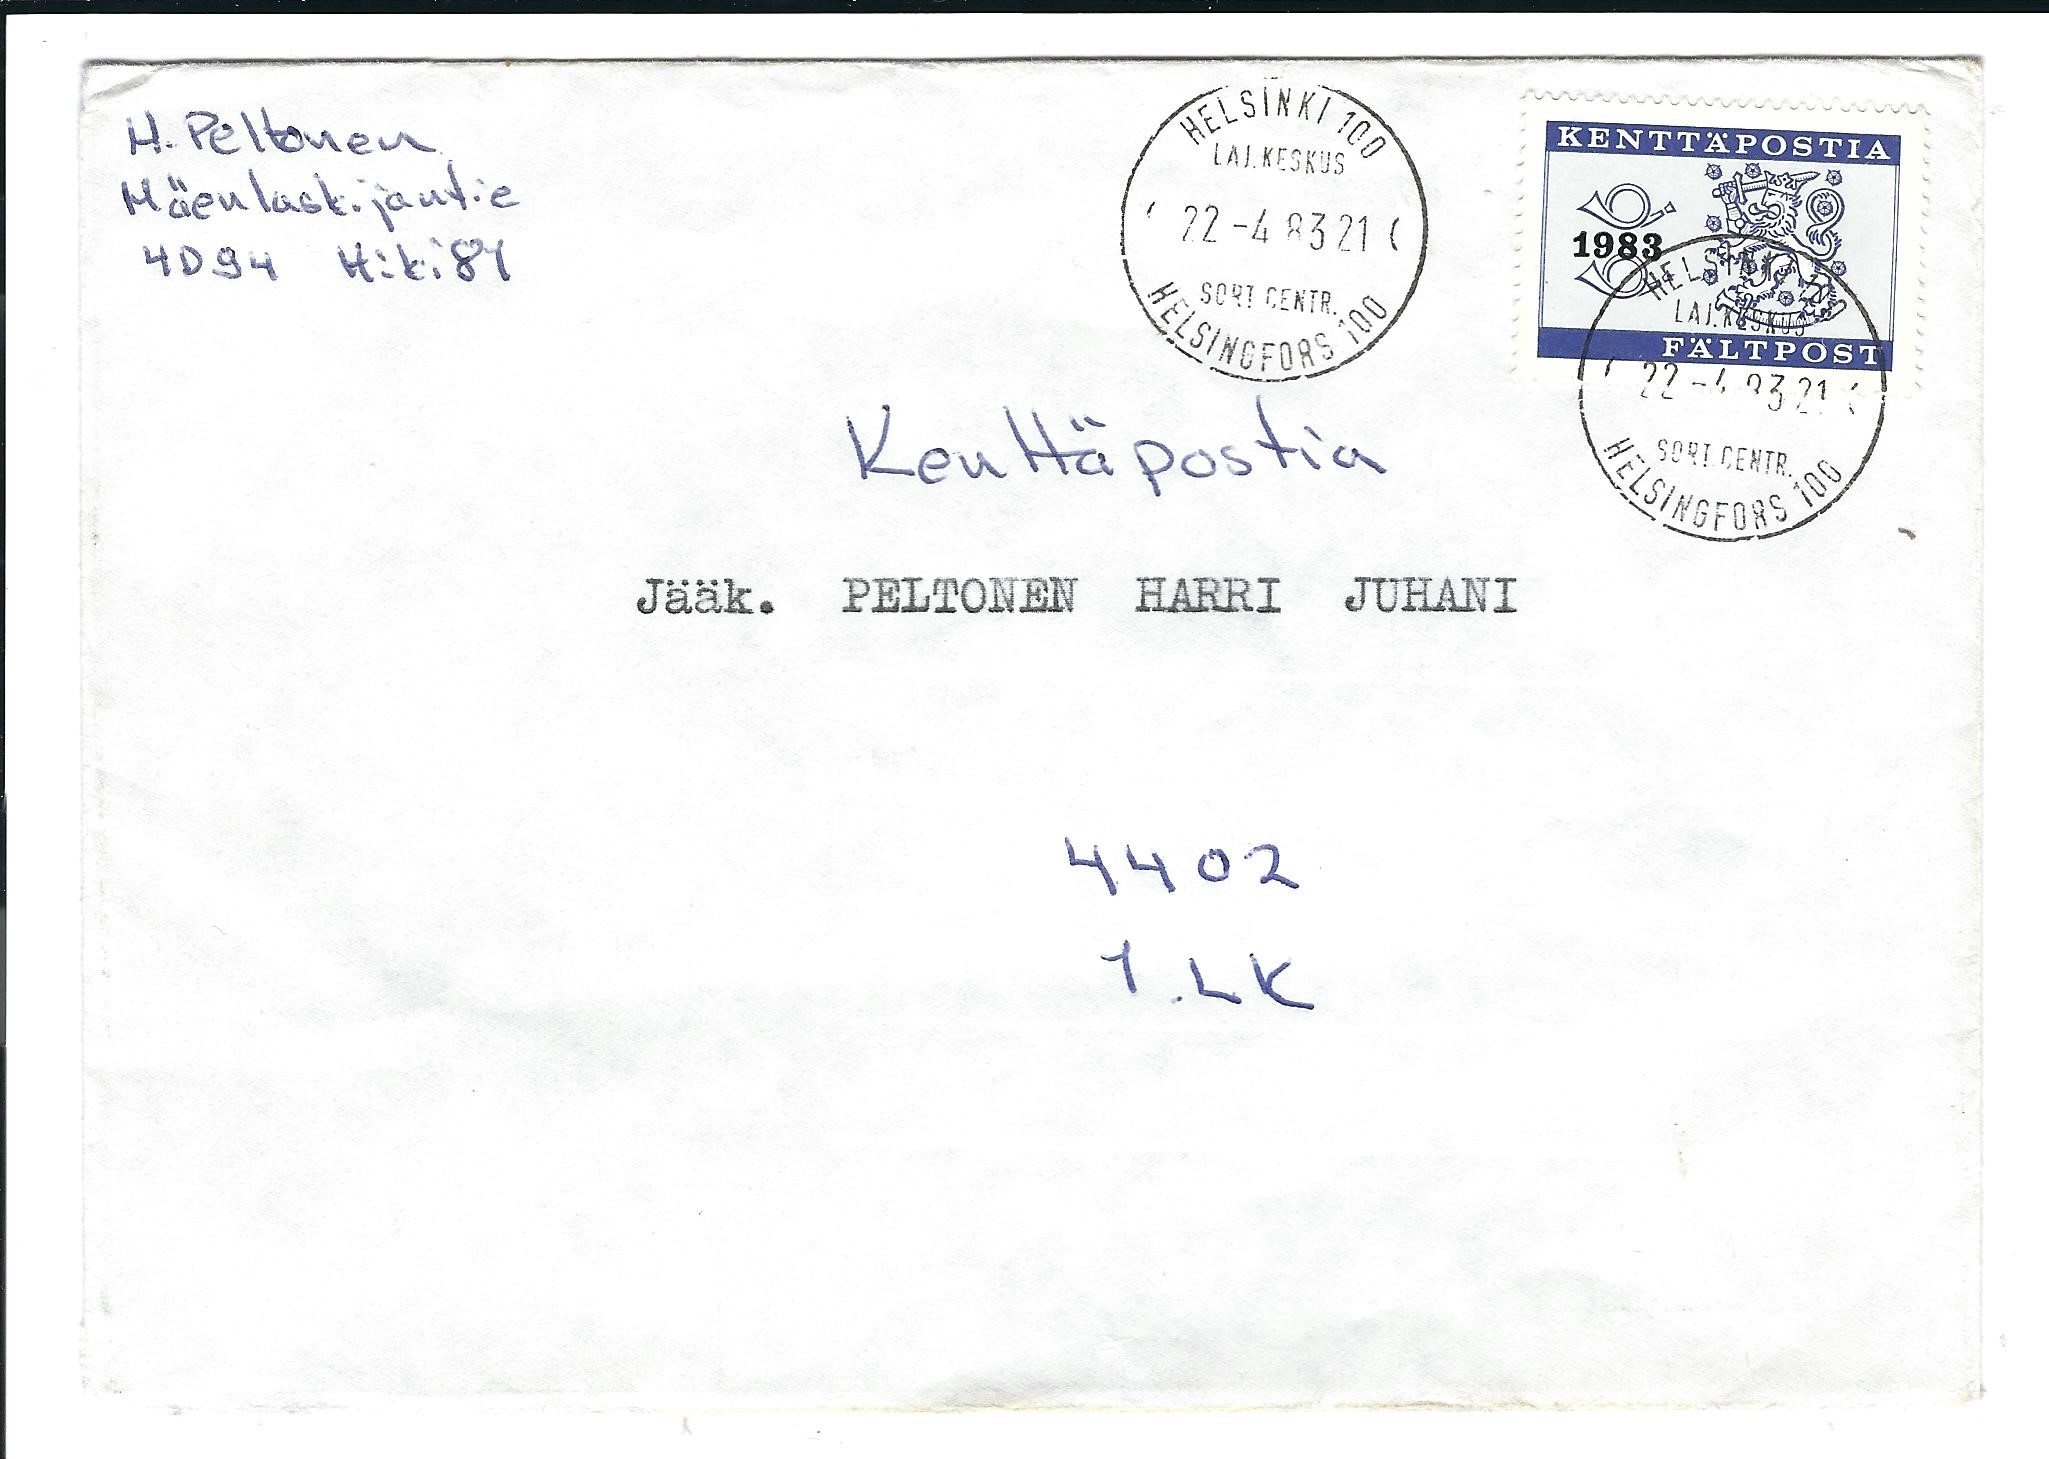 H. Peltonen
Mäenlaskijantie
4D94 Hki 84
HELSINKI 100
LAJ.KESKUS
22-4 83 21
SORT.CENTR.
HELSINGFORS 100
KENTTÄPOSTIA
1983
FÄLTPOST
HELSINKI 100
LAJ.KESKUS
22-4 83 21
SORT.CENTR.
HELSINGFORS 100
Kenttäpostia
Jääk. PELTONEN HARRI JUHANI
4402
1.LK